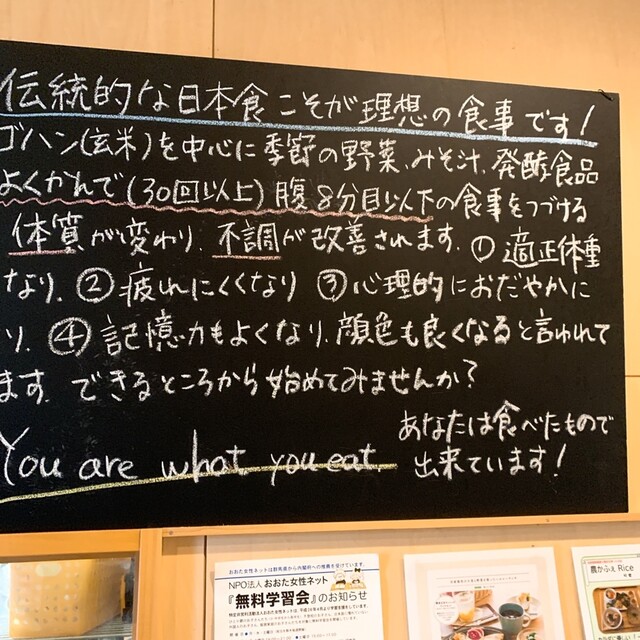 伝統的な日本食こそが理想の食事です!
ゴハン(玄米)を中心に季節の野菜、みそ汁、発酵食品
よくかんで(30回以上)腹8分目以下の食事をつづける
体質が変わり、不調が改善されます。①適正体重
なり、②疲れにくくなり ③心理的におだやかに
り、④記憶力もよくなり、顔色も良くなると言われて
ます。できるところから始めてみませんか?
You are what you eat.
あなたは食べたもので
出来ています!
おおた女性ネットは群馬県から内閣府への推薦を受けています。
NPO法人 おおた女性ネット
『無料学習会』のお知らせ
農かふぇ Rice